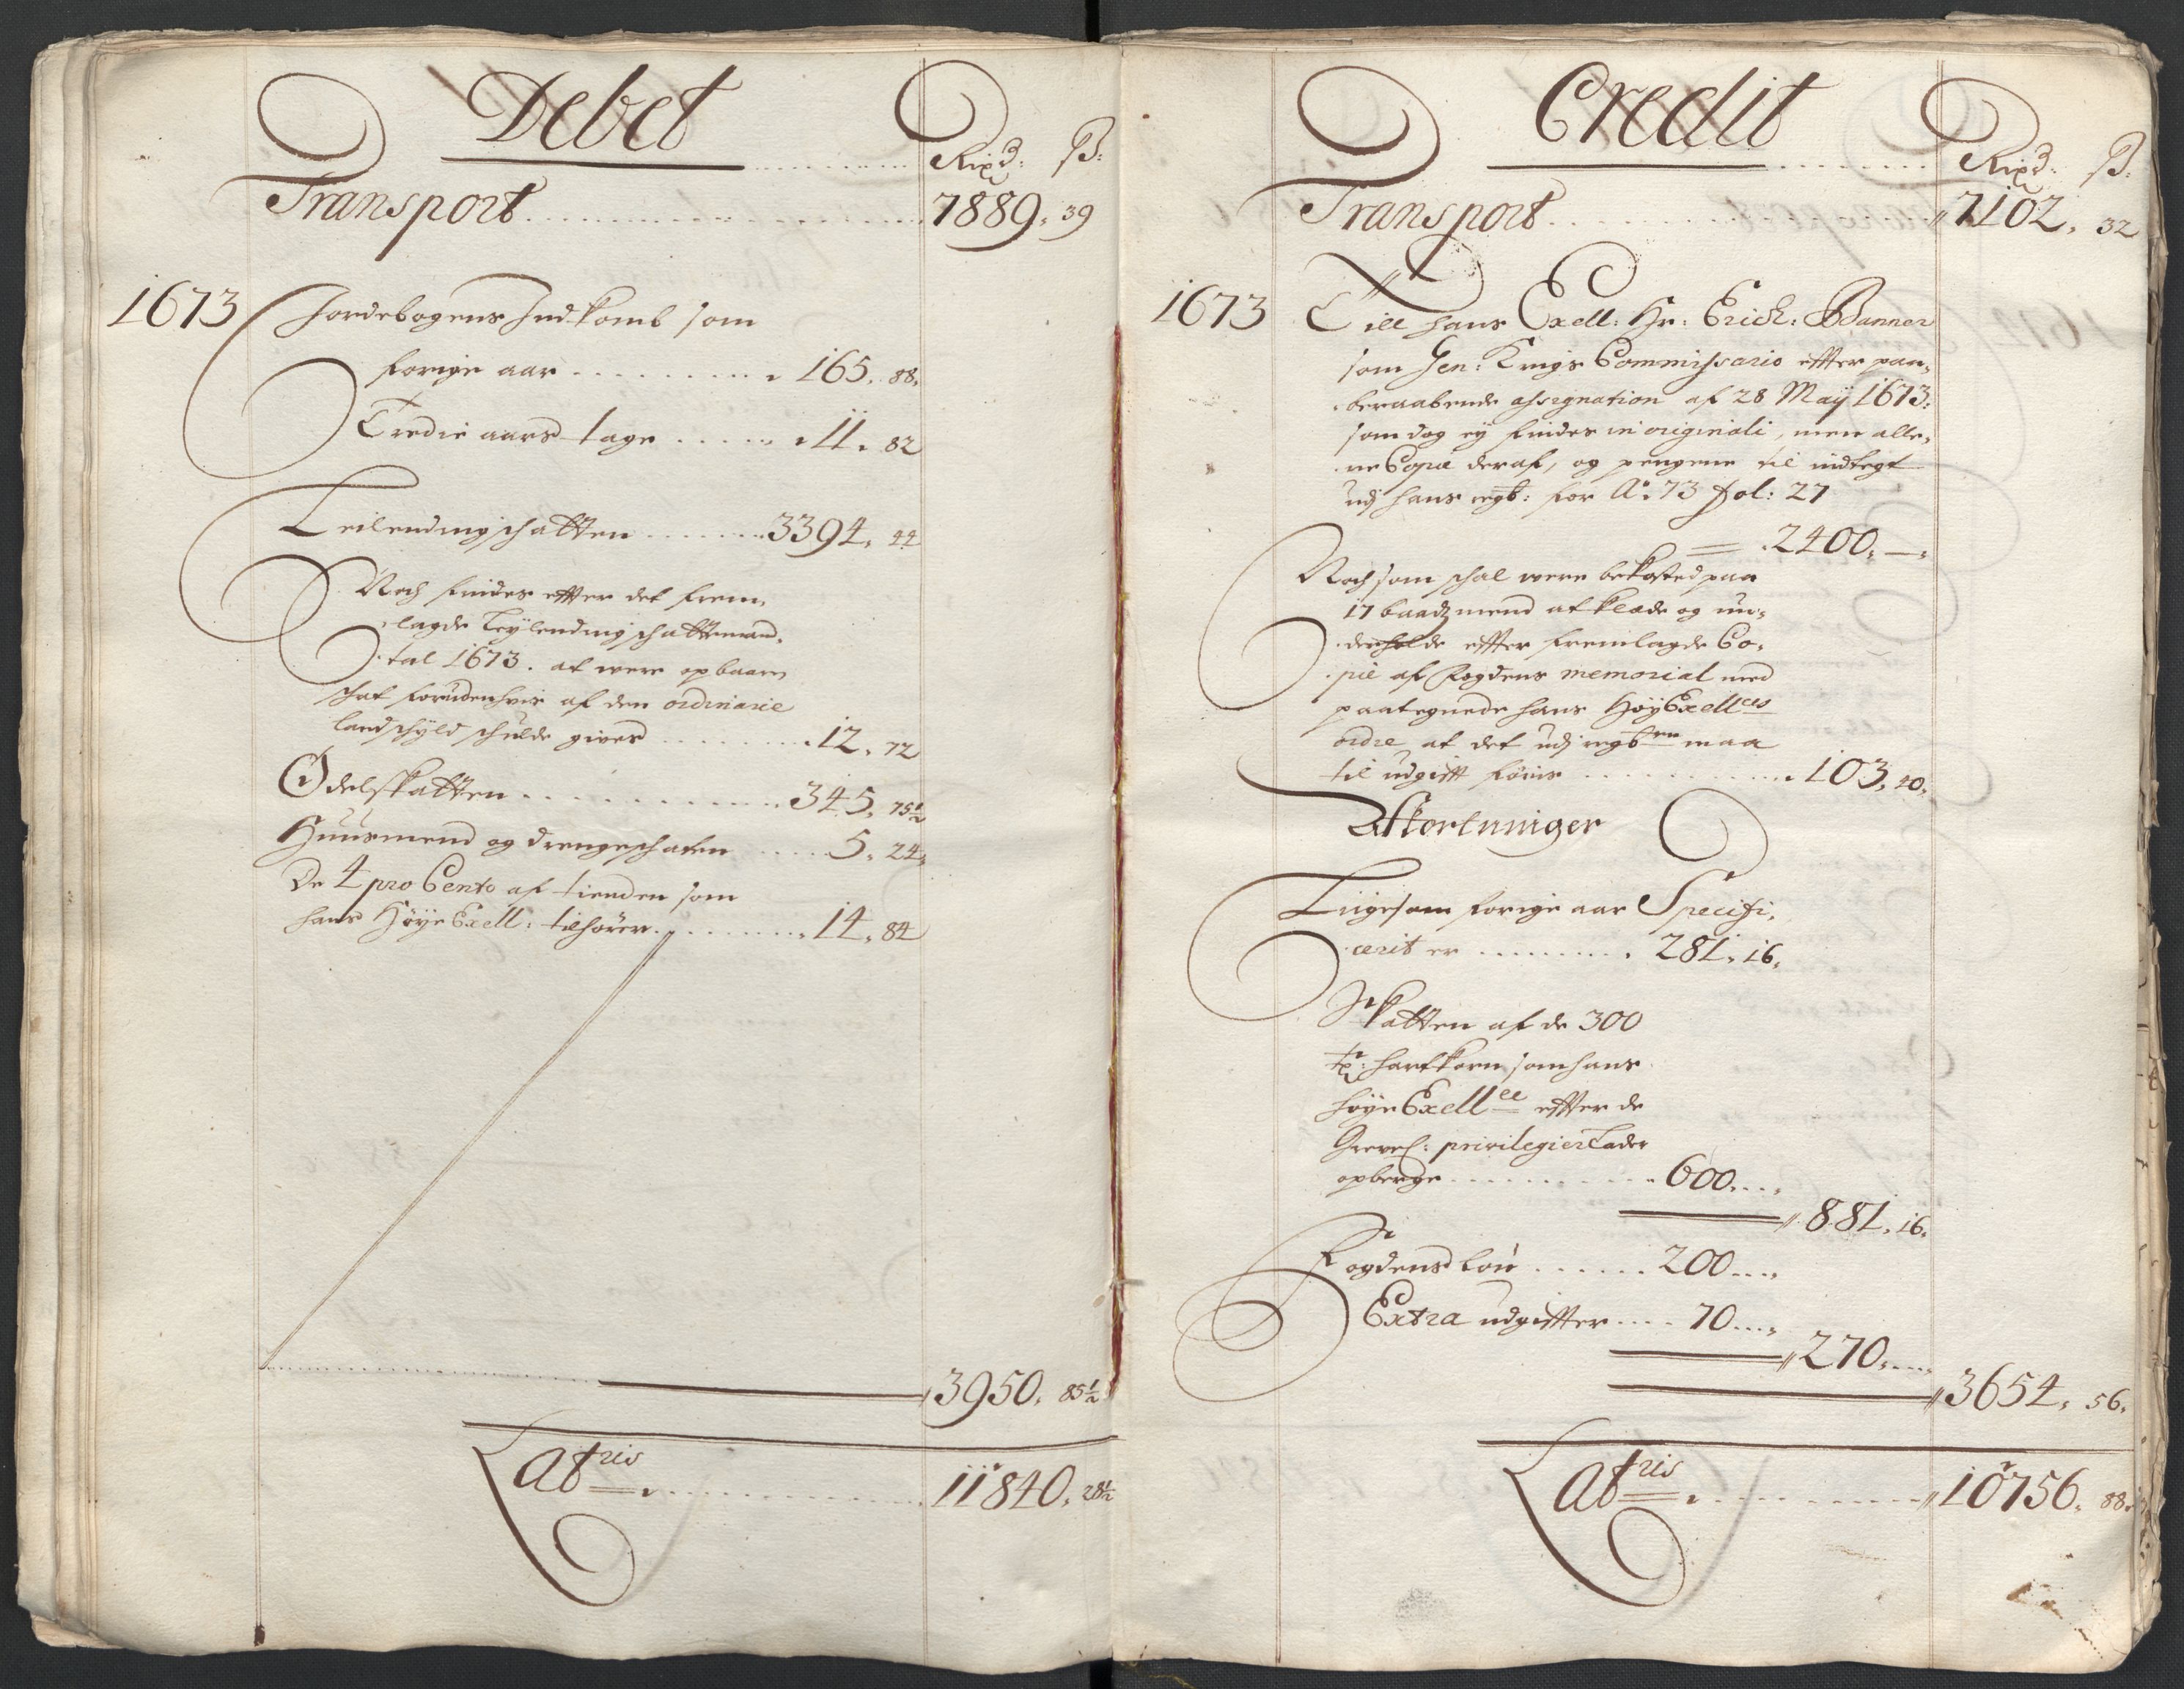 Debet
Rixd: ß:
Transport 7889. 39
1673 Jordebogens Indkomb som
forige aar 165. 88.
Tredie aars tage 11. 82
Leilendingschatten 3394. 44
Noch findes effter det frem
lagde Leylending schattemand
tal 1673. at were opbaaren
schat forudenhvis af den ordinarie
landschyld schulde gives 12. 72
Odelskatten 345. 75½
Huusmend og drengeschaten 5. 24.
De 4 pro Cento af tienden som
hans Høye Exell: tilhører 14. 84
3950. 85½
Latris 11840. 28½
Credit
Rixd: ß:
Transport 7102. 32
1673 Till hans Exell: Hr: Erich: Banner
som Gen: Krigs Commissario effter paa
beraabende assignation af 28 Maij 1673:
som dog ey findes in originali, men alle
ne Copie deraf, og pengene til indtegt
udj hans regb: for Ao. 73 fol: 27
2400. —
Noch som schal were bekosted paa
17 baadzmend at klæde og un
derholde effter fremlagde Co
pie af fogdens memorial med
paategnede hans Høy Exellces
ordre at det udj regbren maa
til udgifft føris 103. 40.
Afkortninger
Liigesom forige aar Specifi
cerit er 281. 16.
Skatten af de 300
tr: hartkorn som hans
høye Exellce effter de
Grevel: privilegier lader
opberge 600
881. 16.
Fogdens løn 200
Extra udgiffter 70
270
3654. 56.
Latris 10756. 88.